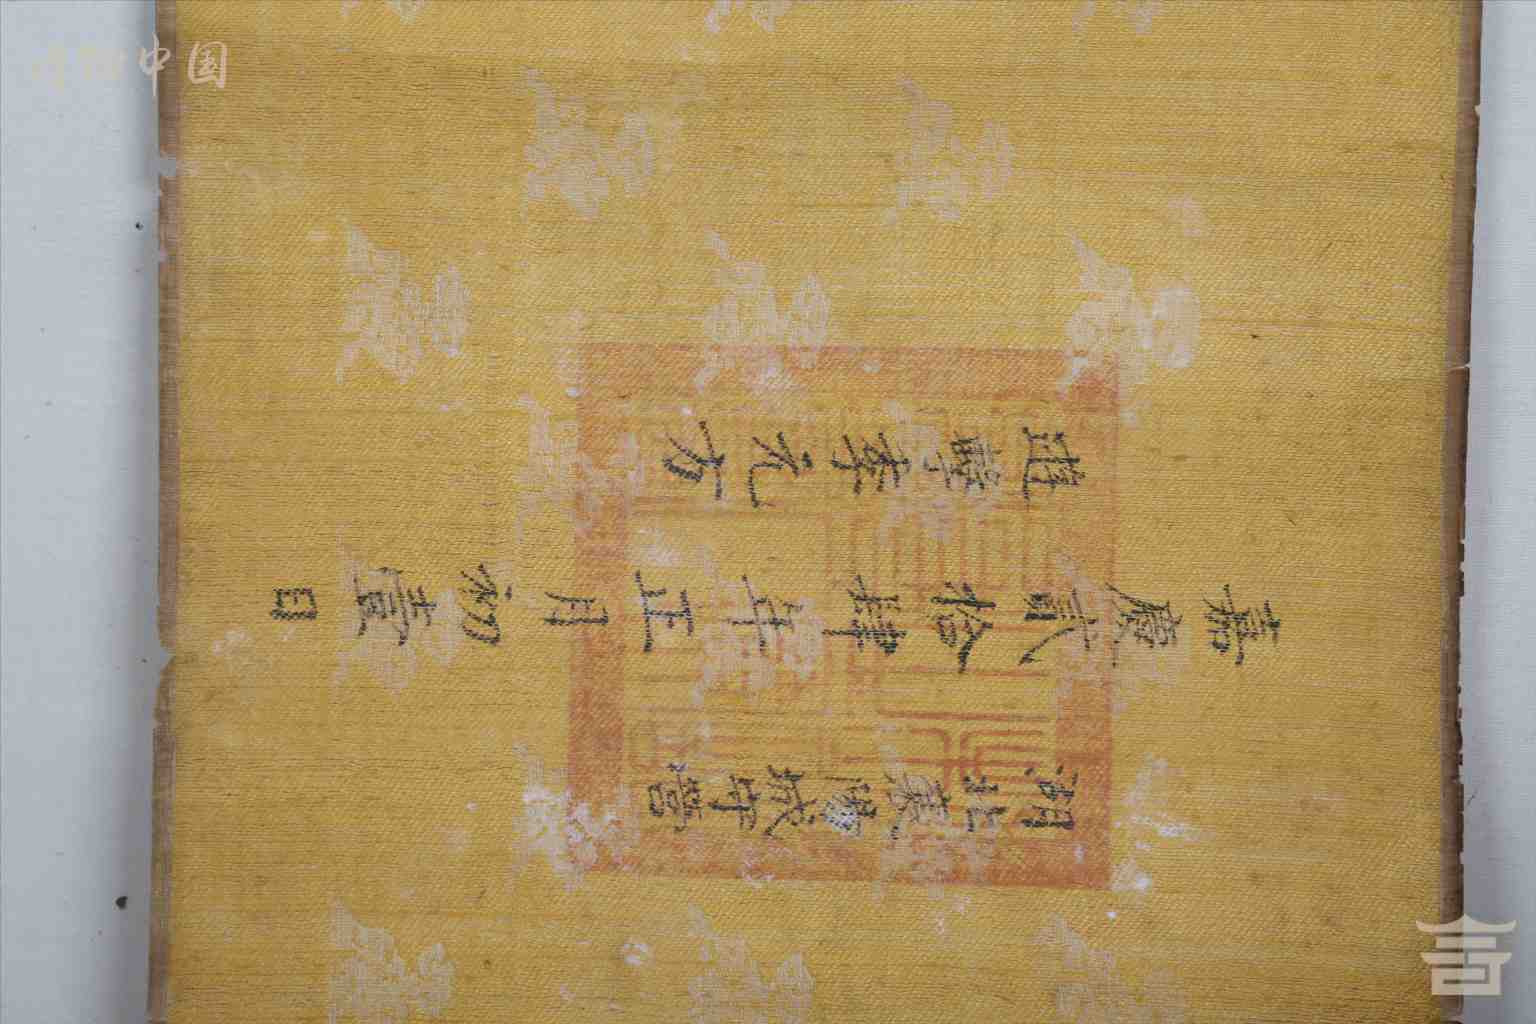 湖北襄陽城守營
嘉慶貳拾肆年正月初壹日
遊擊李元方
中国